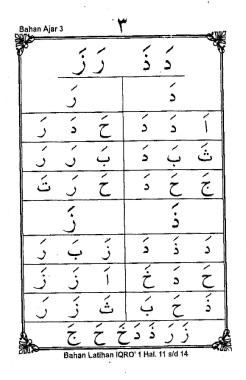 Bahan Ajar 3
٣
دَ ذَ رَ زَ
دَ رَ
اَ دَ دَ حَ دَ رَ
ثَ بَ دَ بَ رَ رَ
جَ حَ دَ حَ رَ تَ
ذَ زَ
دَ ذَ دَ زَ بَ رَ
حَ دَ خَ اَ زَ زَ
ذَ حَ بَ ثَ زَ رَ
جَ حَ خَ دَ ذَ رَ زَ
Bahan Latihan IQRO' 1 Hal. 11 s/d 14